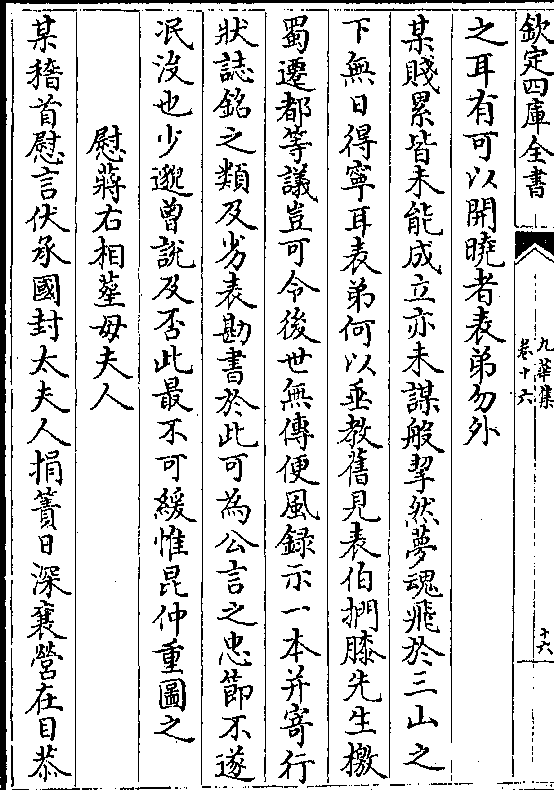 欽定四庫全書
九華集
卷十六
十六
之耳有可以開曉者表弟勿外
某賤累皆未能成立亦未謀般挈然夢魂飛於三山之
下無日得寧耳表弟何以垂教舊見表伯捫膝先生檄
蜀遷都等議豈可令後世無傳便風録示一本并寄行
狀誌銘之類及劣表勘書於此可為公言之忠節不遂
泯没也少邈曽說及否此最不可緩惟昆仲重圖之
慰蔣右相塟母夫人
某稽首慰言伏承國封太夫人捐簀日深襄營在目恭